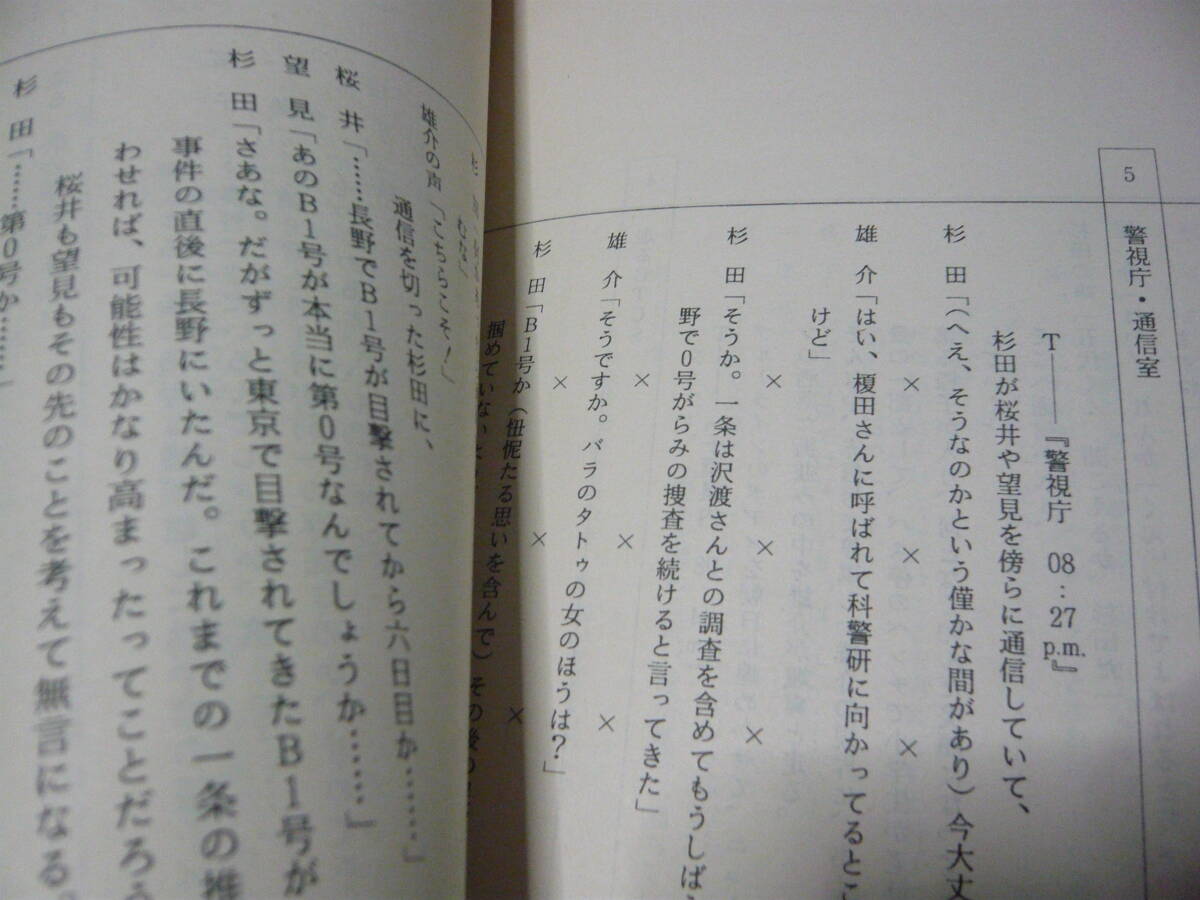 5
警視庁・通信室
T───『警視庁 08:27 p.m.』
杉田が桜井や望見を傍らに通信していて、
杉 田「(へえ、そうなのかという僅かな間があり)今大丈
× × ×
雄 介「はい、榎田さんに呼ばれて科警研に向かってるとこ
けど」
× × ×
杉 田「そうか。一条は沢渡さんとの調査を含めてもうしば
野で0号がらみの捜査を続けると言ってきた」
× × ×
雄 介「そうですか。バラのタトゥの女のほうは?」
× × ×
杉 田「B1号か(忸怩たる思いを含んで)その後の
掴めていない
むな」
雄介の声「こちらこそ!」
通信を切った杉田に、
桜 井「……長野でB1号が目撃されてから六日目か……」
望 見「あのB1号が本当に第0号なんでしょうか……」
杉 田「さあな。だがずっと東京で目撃されてきたB1号が
事件の直後に長野にいたんだ。これまでの一条の推
わせれば、可能性はかなり高まったってことだろう
桜井も望見もその先のことを考えて無言になる。
杉 田「……第0号か………」